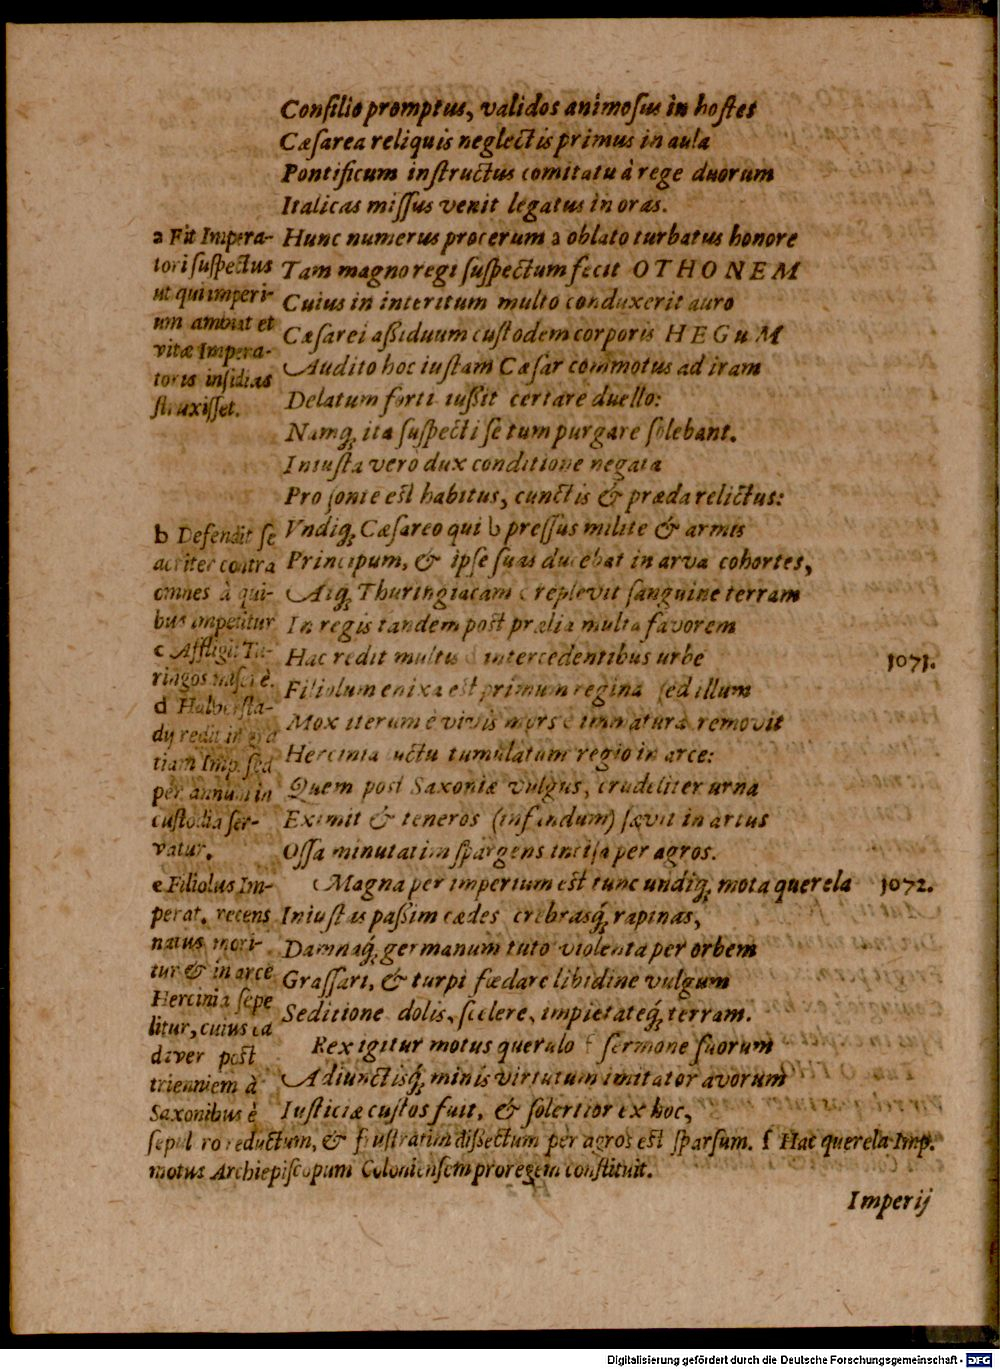 Consilio promptus, validos animosus in hostes
Cæsarea reliquis neglectis primus in aula
Pontificum instructus comitatu à rege duorum
Italicas missus venit legatus in oras.
Hunc numerus procerum a oblato turbatus honore
Tam magno regi suspectum fecit OTHONEM
Cuius in interitum multo conduxerit auro
Cæsarei aßiduum custodem corporis HEGuM
Audito hoc iustam Cæsar commotus ad iram
Delatum forti iußit certare duello:
Namq́; ita suspecti se tum purgare solebant.
Iniusta vero dux conditione negata
Pro sonte est habitus, cunctis & præda relictus:
Vndiq́; Cæsareo qui b pressus milite & armis
Principum, & ipse suas ducebat in arva cohortes,
Atq́; Thuringiacam c replevit sanguine terram
In regis tandem post prælia multa favorem
Hac redit multis d intercedentibus urbe 1071.
Filiolum enixa est primum regina sed illum
Mox iterum è vivis mors e immatura removit
Hercinia luctu tumulatum regio in arce:
Quem post Saxoniæ vulgus, crudeliter urna
Eximit & teneros (infandum) sævit in artus
Ossa minutatim spargens incisa per agros.
Magna per imperium est tunc undiq́; mota querela 1072.
Iniustis paßim cædes crebrasq́; rapinas,
Damnaq́; germanum tuto violenta per orbem
Grassari, & turpi fœdare libidine vulgum
Seditione dolis, scelere, impietateq́; terram.
Rex igitur motus querulo f sermone suorum
Adiunctisq́; minis virtutum imitator avorum
Iusticiæ custos fuit, & solertior ex hoc,
a Fit Impera-
tori suspectus
ut qui imperi-
um ambiat et
vitæ Impera-
toris insidias
struxisset.
b Defendit se
acriter contra
omnes à qui-
bus impetitur
c Affligit Tu-
ringos miserè.
d Halbersta-
dij redit in gra
tiam Imp. sed
per annum in
custodia ser-
vatur.
e Filiolus Im-
perat. recens
natus mori-
tur & in arce
Hercinia sepe
litur, cuius ca
daver post
trienniem à
Saxonibus è
sepulcro eductum, & frustratim dißectum per agros est sparsum. f Hac querela Imp.
motus Archiepiscopum Coloniensem proregem constituit.
Imperij
Digitalisierung gefördert durch die Deutsche Forschungsgemeinschaft - DFG